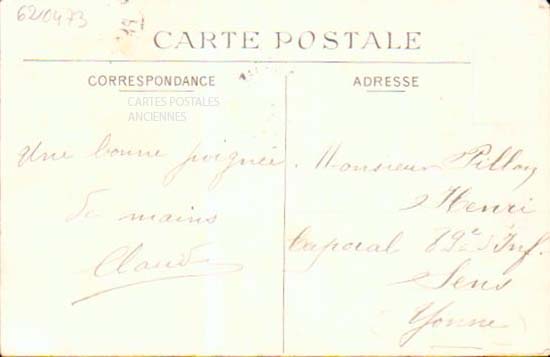 6210473
CARTE POSTALE
CORRESPONDANCE
CARTES POSTALES
ANCIENNES
Une bonne poignée
de mains
Claude
ADRESSE
Monsieur Pillon
Henri
Caporal 89e d'Inf.
Sens
(Yonne)